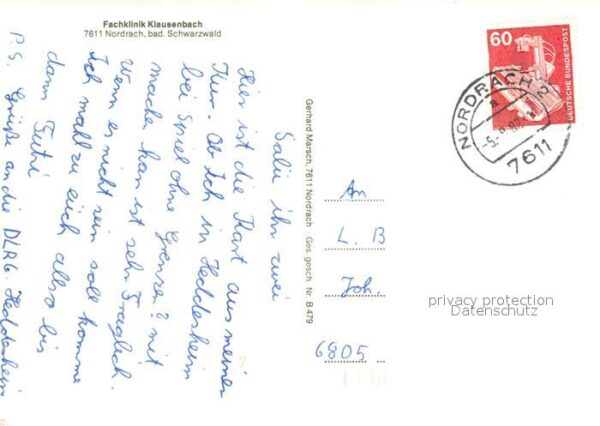 Fachklinik Klausenbach
7611 Nordrach, bad. Schwarzwald
Salü ihr zwei
Hier ist die Kart aus meiner
Kur. Ob Ich in Heddesheim
bei Spiel ohne Grenzen? mit
mache kan ist sehr Fraglich.
Wenn es nicht sein soll komme
Ich mall zu euch also bis
dann
P.S. Grüße an die DLRG. Heddesheim
Gerhard Marsch, 7611 Nordrach Ges. gesch. Nr B 479
An
L. B
Joh.
6805
60
DEUTSCHE BUNDESPOST
NORDRACH
a
7611
privacy protection
Datenschutz